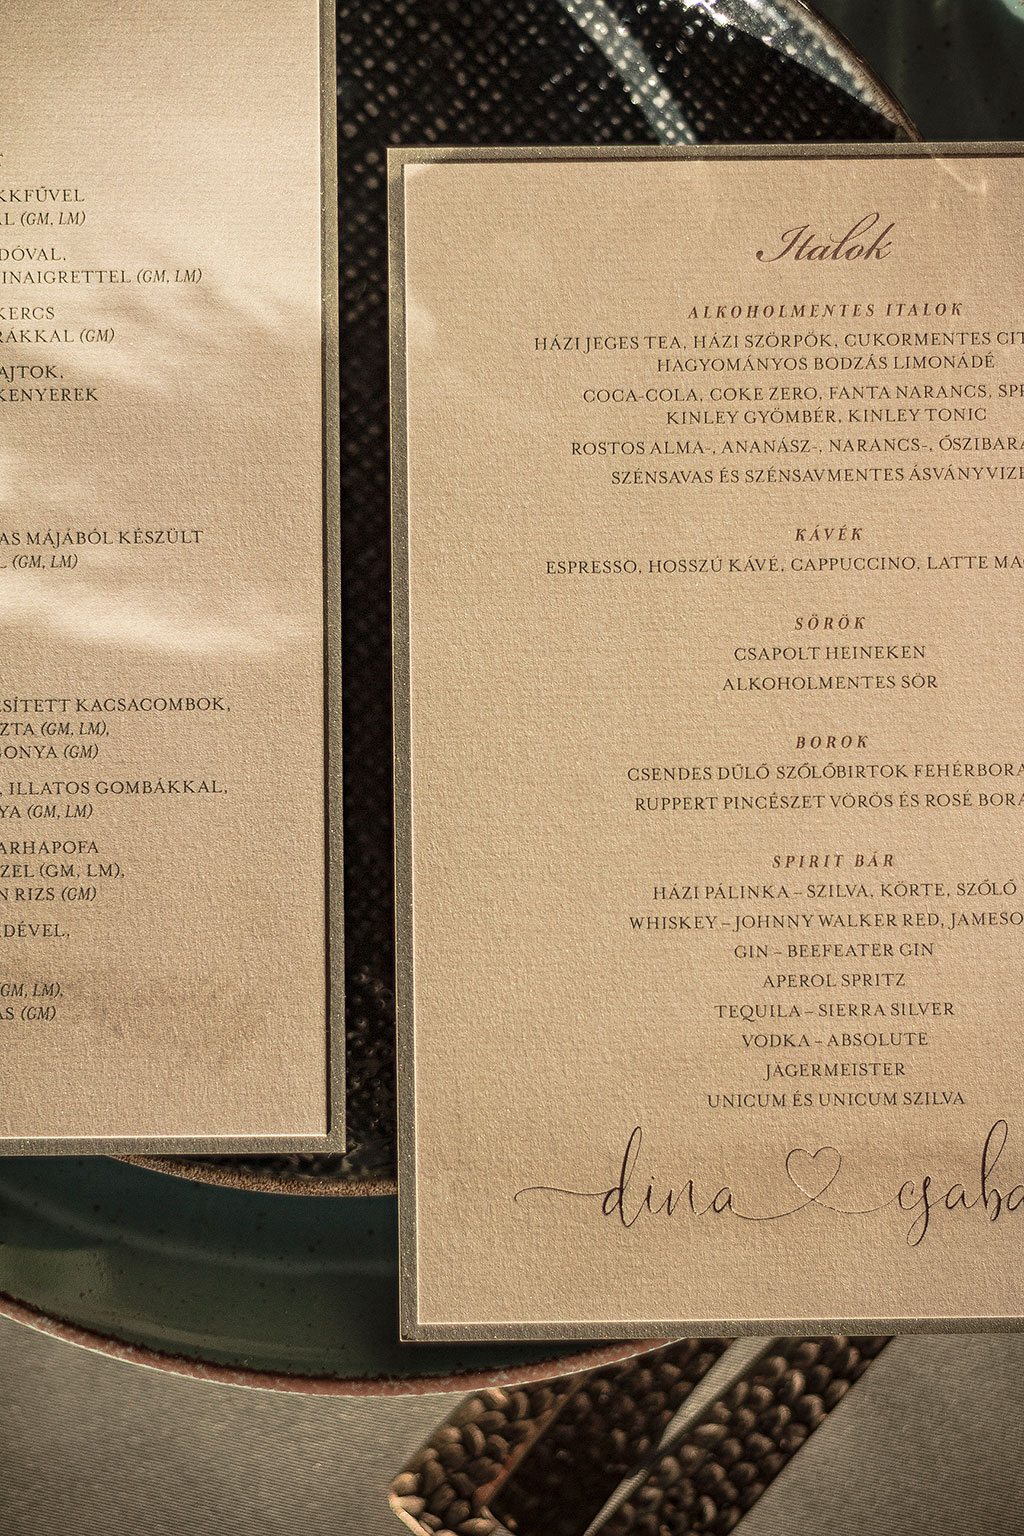 KKFŰVEL
AL (GM, LM)
DÓVAL,
INAIGRETTEL (GM, LM)
KERCS
RÁKKAL (GM)
AJTOK,
KENYEREK
AS MÁJÁBÓL KÉSZÜLT
L (GM, LM)
ESÍTETT KACSACOMBOK,
ZTA (GM, LM),
GONYA (GM)
, ILLATOS GOMBÁKKAL,
YA (GM, LM)
ARHAPOFA
ZEL (GM, LM),
N RIZS (GM)
DÉVEL,
(GM, LM),
ÁS (GM)
Italok
ALKOHOLMENTES ITALOK
HÁZI JEGES TEA, HÁZI SZÖRPÖK, CUKORMENTES CIT
HAGYOMÁNYOS BODZÁS LIMONÁDÉ
COCA-COLA, COKE ZERO, FANTA NARANCS, SPR
KINLEY GYÖMBÉR, KINLEY TONIC
ROSTOS ALMA-, ANANÁSZ-, NARANCS-, ŐSZIBARA
SZÉNSAVAS ÉS SZÉNSAVMENTES ÁSVÁNYVIZE
KÁVÉK
ESPRESSO, HOSSZÚ KÁVÉ, CAPPUCCINO, LATTE MA
SÖRÖK
CSAPOLT HEINEKEN
ALKOHOLMENTES SÖR
BOROK
CSENDES DŰLŐ SZŐLŐBIRTOK FEHÉRBORA
RUPPERT PINCÉSZET VÖRÖS ÉS ROSÉ BORA
SPIRIT BÁR
HÁZI PÁLINKA – SZILVA, KÖRTE, SZŐLŐ
WHISKEY – JOHNNY WALKER RED, JAMESO
GIN – BEEFEATER GIN
APEROL SPRITZ
TEQUILA – SIERRA SILVER
VODKA – ABSOLUTE
JÄGERMEISTER
UNICUM ÉS UNICUM SZILVA
dina csaba